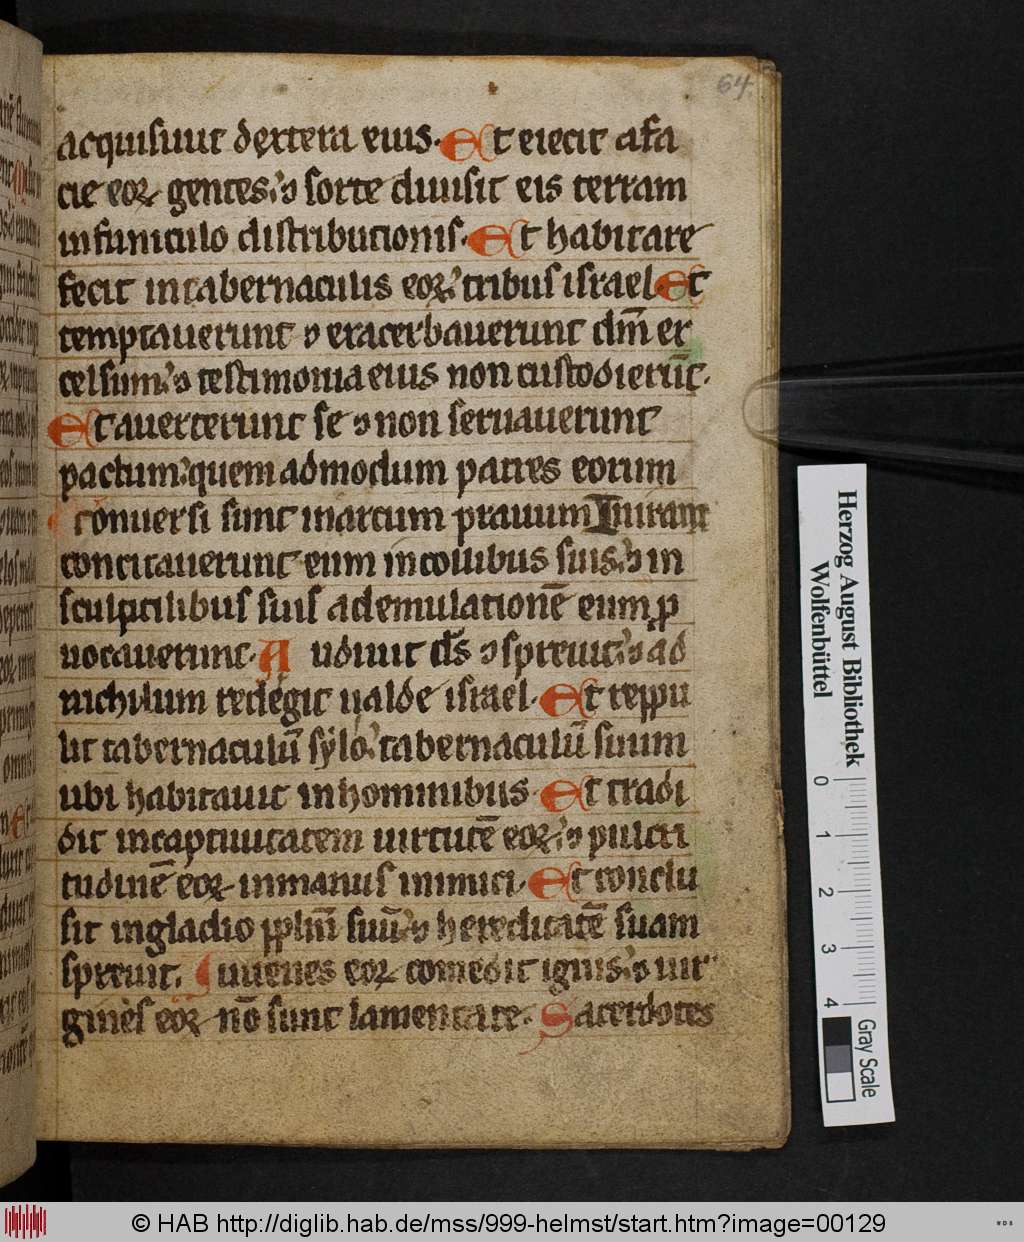 64.
acquisiuit dextera eius. Et eiecit afa
cie eoꝝ gentes.ꝛ sorte diuisit eis terram
infuniculo distributionis. Et habitare
fecit intabernaculis eoꝝ tribus israel. Et
temptauerunt ꝛ exacerbauerunt dm̄ ex
celsum. ꝛ testimonia eius non custodierūt.
Et auerterunt se ꝛ non seruauerunt
pactum. quemadmodum patres eorum
conuersi sunt inarcum prauum In iram
concitauerunt eum incollibus suis. ꝛ in
sculptilibus suis ademulationē eum ꝓ
uocauerunt. Audiuit ds̄ ꝛ spreuit. ꝛ ad
nichilum redegit ualde israel. Et reppu
lit tabernaculū sẏlo. tabernaculū suum
ubi habitauit inhominibus. Et tradi
dit incaptiuitatem uirtutē eoꝝ. ꝛ pulcri
tudinē eoꝝ inmanus inimici. Et conclu
sit ingladio pplm̄ suū ꝛ hereditatē suam
spreuit. Iuuenes eoꝝ comedit ignis. ꝛ uir
gines eoꝝ nō sunt lamentate. Sacerdotes
Herzog August Bibliothek
Wolfenbüttel
0 1 2 3 4
Gray Scale
© HAB http://diglib.hab.de/mss/999-helmst/start.htm?image=00129